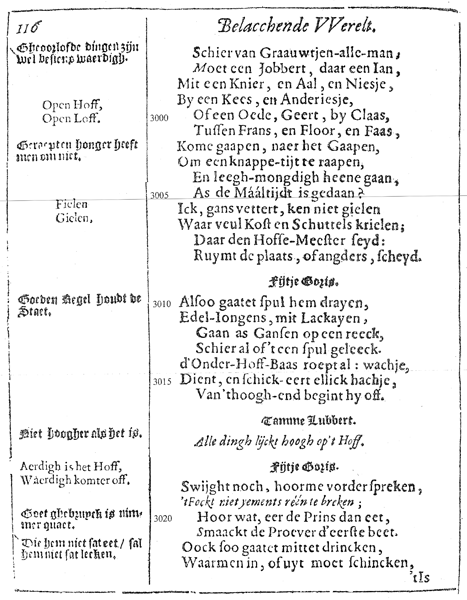 116
Belacchende VVerelt.
Gheoorlofde dingen zijn
wel besiens waerdigh.
Schier van Graauwtjen-alle-man,
Moet een Jobbert, daar een Ian,
Mit een Knier, en Aal, en Niesje,
Open Hoff,
Open Loff.
By een Kees, en Anderiesje,
3000
Of een Oede, Geert, by Claas,
Tussen Frans, en Floor, en Faas,
Geraepten honger heeft
men om niet.
Kome gaapen, naer het Gaapen,
Om een knappe-tijt te raapen,
En leegh-mongdigh heene gaan,
3005
As de Mááltijdt is gedaan?
Fielen
Gielen,
Ick, gans vettert, ken niet gielen
Waar veul Kost en Schuttels krielen;
Daar den Hoffe-Meester seyd:
Ruymt de plaats, of angders, scheyd.
Fijtje Goris.
Goeden Regel houdt de
Staet.
3010
Alsoo gaatet spul hem drayen,
Edel-Iongens, mit Lackayen,
Gaan as Gansen op een reeck,
Schier al of 't een spul geleeck.
d'Onder-Hoff-Baas roept al: wachje,
3015
Dient, en schick-eert ellick hachje,
Van 'thoogh-end begint hy off.
Tamme Lubbert.
Niet hoogher als het is.
Alle dingh lijckt hoogh op't Hoff.
Fijtje Goris.
Aerdigh is het Hoff,
Waerdigh komter off.
Swijght noch, hoorme vorder spreken,
'tFockt niet yements réén te breken;
Goet ghebruyck is nim-
mer quaet.
3020
Hoor wat, eer de Prins dan eet,
Smaackt de Proever d'eerste beet.
Die hem niet sat eet/ sal
hem niet sat lecken.
Oock soo gaatet mittet drincken,
Waarmen in, of uyt moet schincken,
'tIs